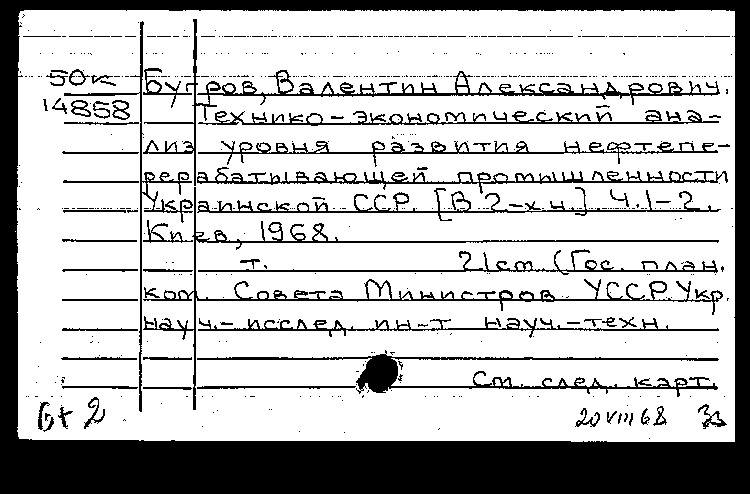 50к Бугров, Валентин Александрович.
14858 Технико-экономический ана-
лиз уровня развития нефтепе-
рерабатывающей промышленности
Украинской ССР. [В 2-х ч.] Ч.1-2.
Киев, 1968.
т. 21 cm (Гос. план.
ком. Совета Министров УССР. Укр.
науч.-исслед. ин-т науч.-техн.
См. след. карт.
20 VIII 68